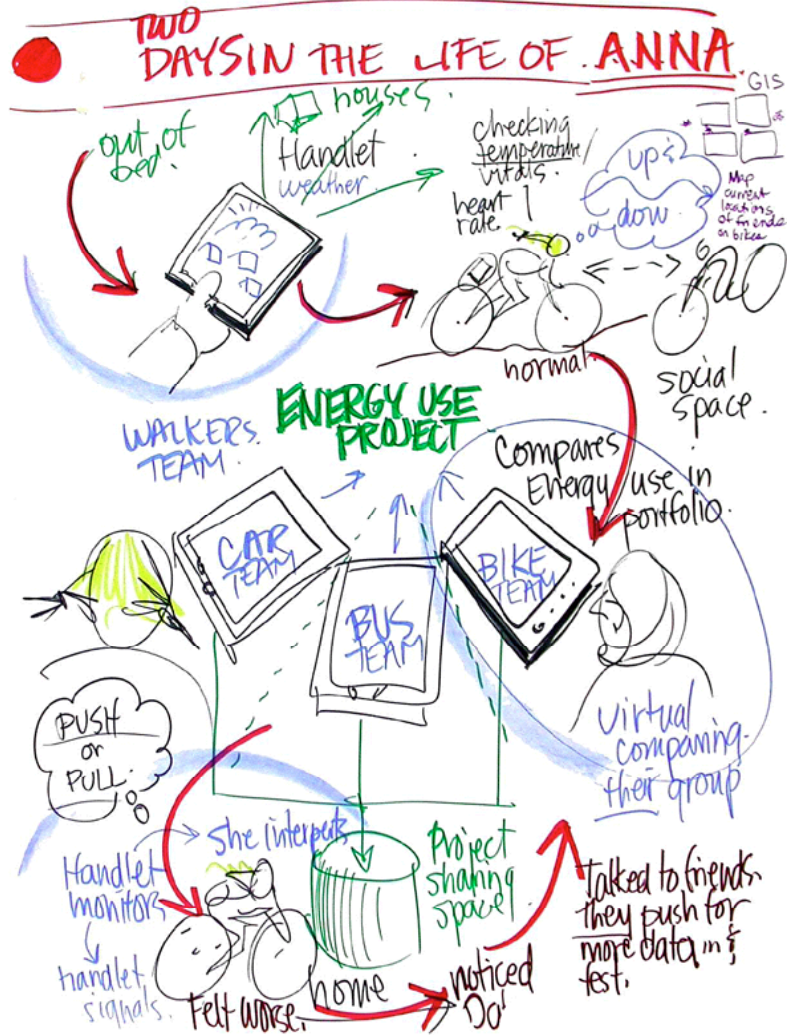 TWO
DAYS IN THE LIFE OF ANNA
GIS
houses.
out of
bed.
Handlet
weather
checking
temperature/
vitals.
heart
rate.
up &
dow
Map
current
locations
of friends
on bikes
normal
social
space.
WALKERS
TEAM.
ENERGY USE
PROJECT
Compares
Energy use in
portfolio.
CAR
TEAM
BUS
TEAM
BIKE
TEAM
PUSH
or
PULL.
virtual
companing
their group
she interperts
Handlet
monitors
handlet
signals.
Project
sharing
space
Felt worse.
home
noticed
Talked to friends.
they push for
more data in &
test.